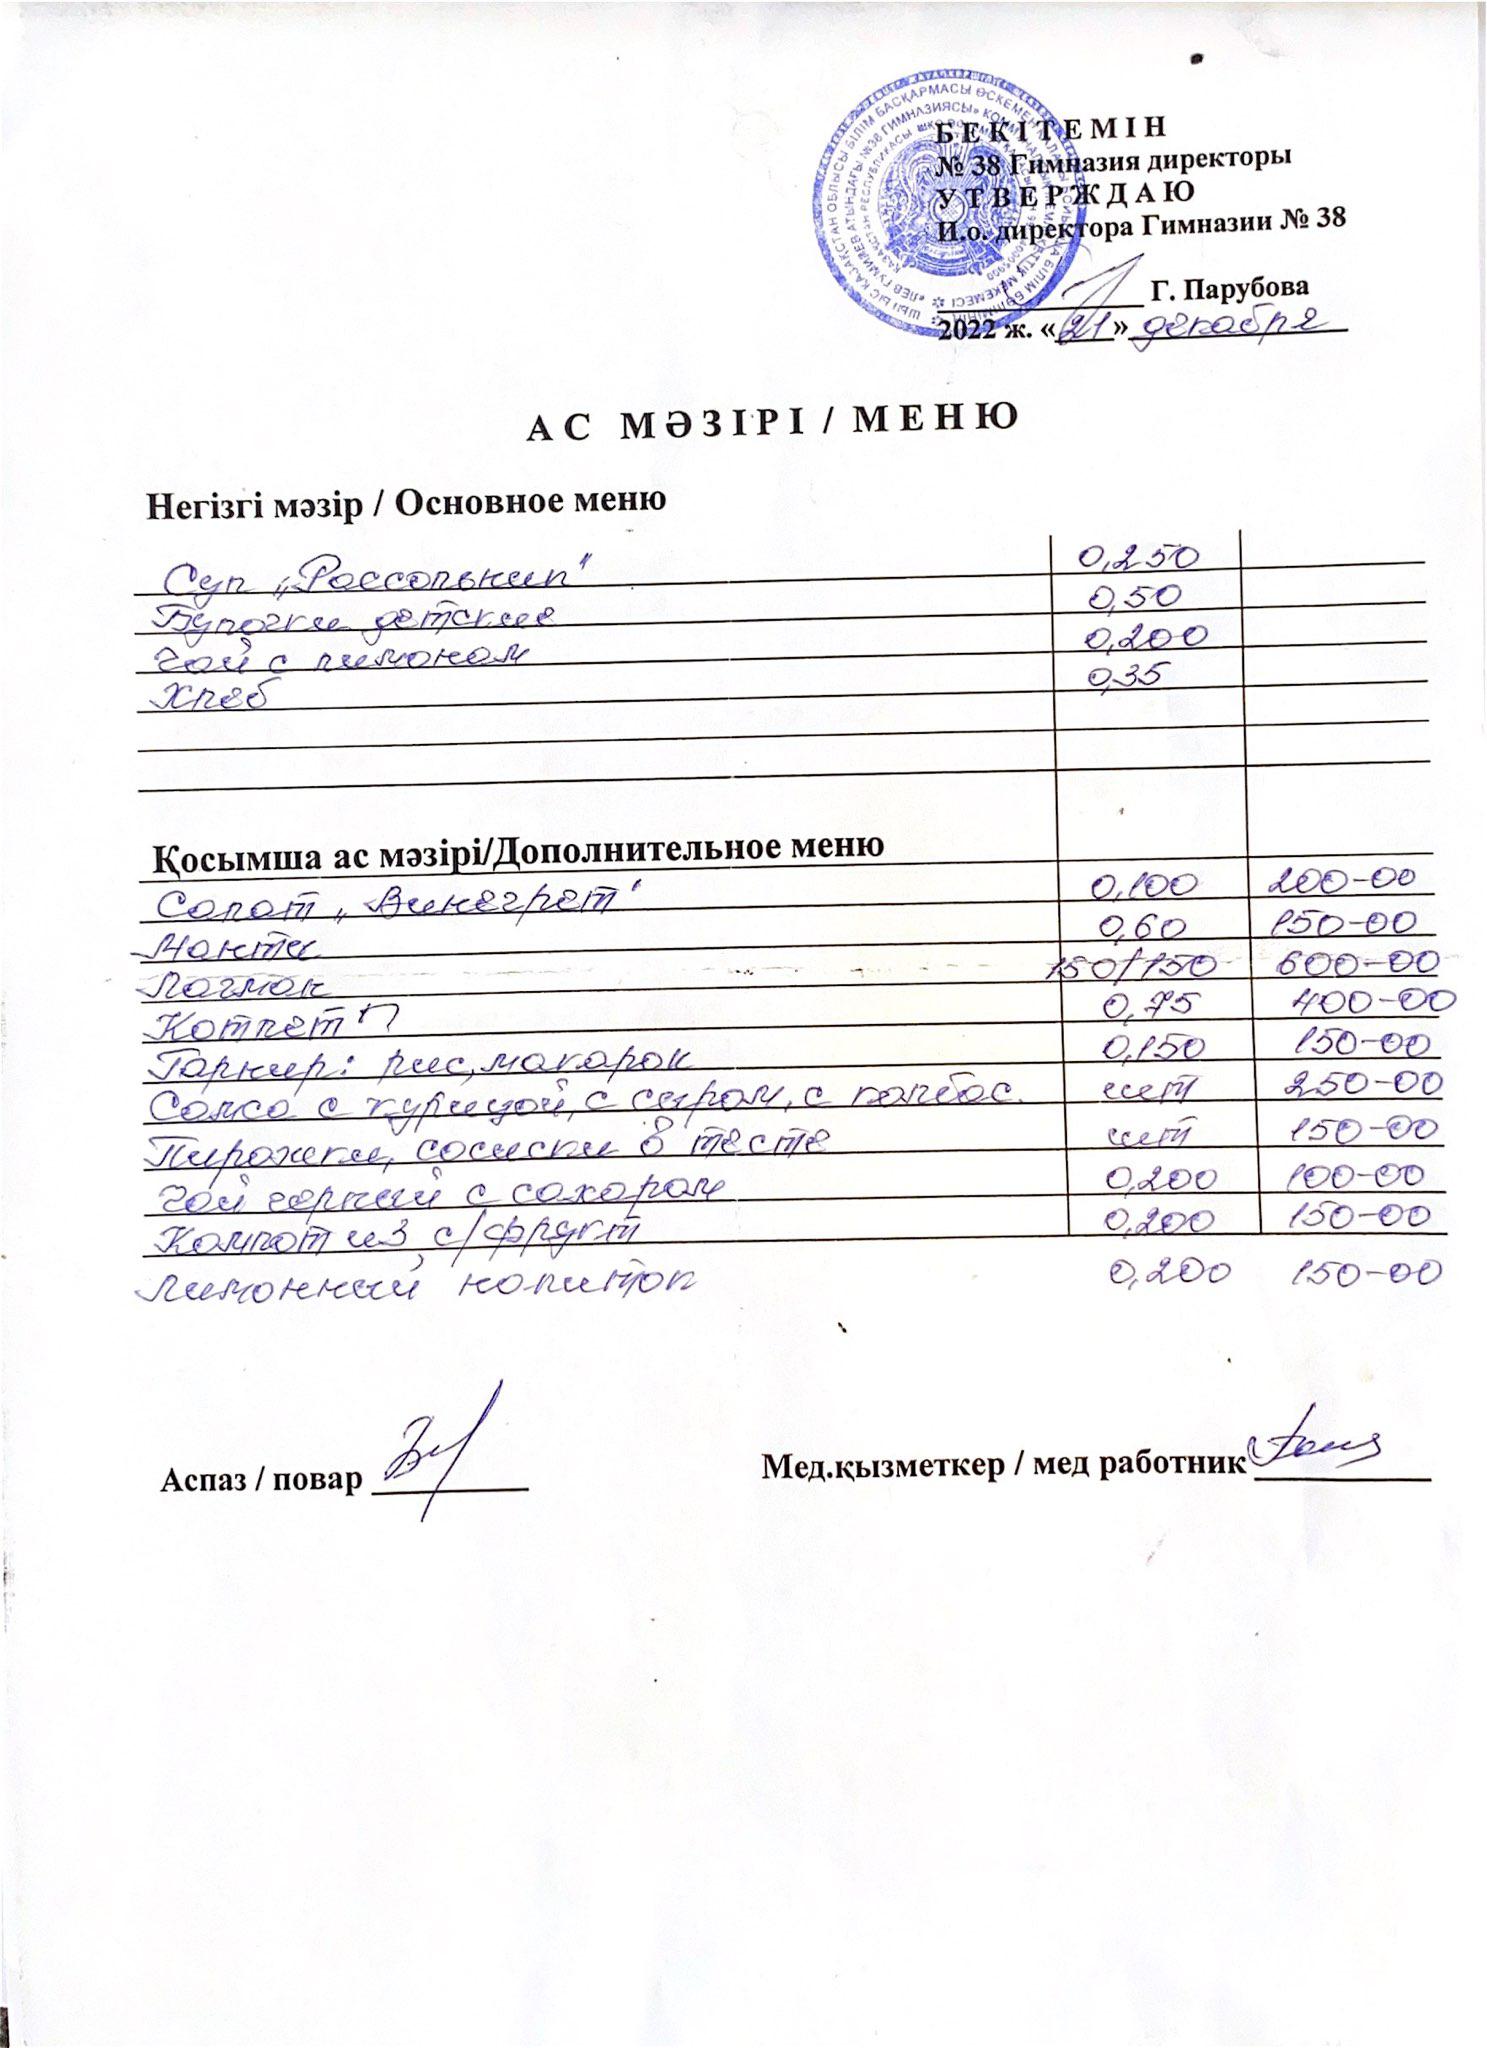 БЕКІТЕМІН
№ 38 Гимназия директоры
УТВЕРЖДАЮ
И.о. директора Гимназии № 38
Г. Парубова
2022 ж. «21» декабря
АС МӘЗІРІ / МЕНЮ
Негізгі мәзір / Основное меню
Суп „Рассольник" 0,250
Булочки детские 0,50
Чай с лимоном 0,200
Хлеб 0,35
Қосымша ас мәзірі/Дополнительное меню
Салат „Винегрет" 0,100 200-00
Манты 0,60 150-00
Лагман 150/150 600-00
Котлет П 0,75 400-00
Гарнир: рис, макарон 0,150 150-00
Самса с курицой, с сыром, с колбас. шт 250-00
Пирожки, сосиски в тесте шт 150-00
Чай черный с сахаром 0,200 100-00
Компот из с/фрукт 0,200 150-00
Лимонный напиток 0,200 150-00
Аспаз / повар
Мед.қызметкер / мед работник